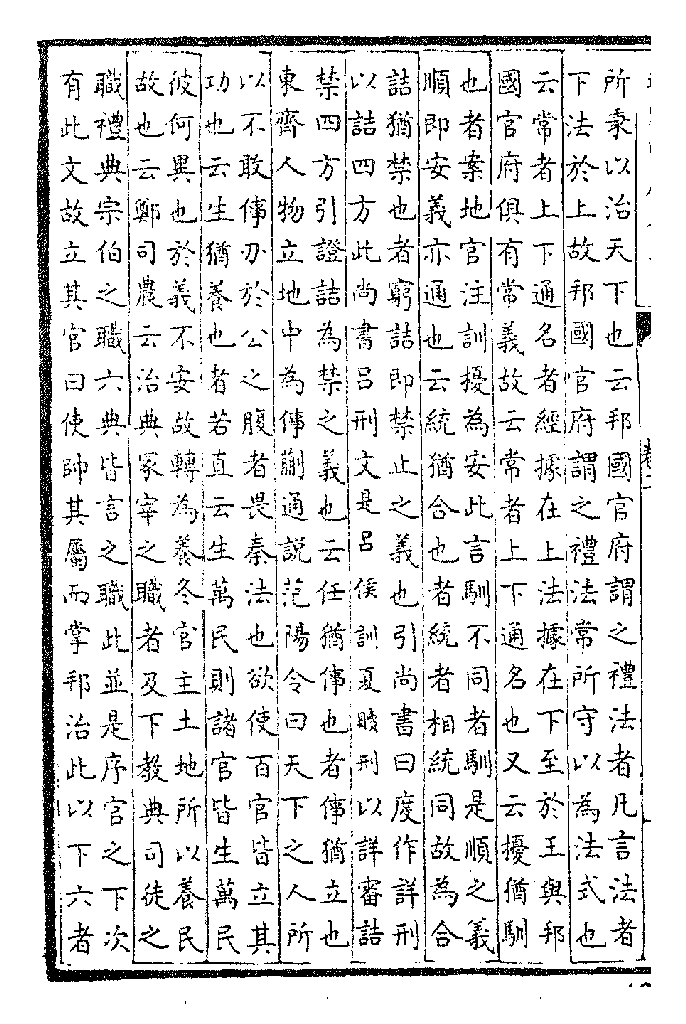 所秉以治天下也云邦國官府謂之禮法者凡言法者
下法於上故邦國官府謂之禮法常所守以為法式也
云常者上下通名者經據在上法據在下至於王與邦
國官府俱有常義故云常者上下通名也又云擾猶馴
也者案地官注訓擾為安此言馴不同者馴是順之義
順即安義亦通也云統猶合也者統者相統同故為合
詰猶禁也者窮詰即禁止之義也引尚書曰度作詳刑
以詰四方此尚書呂刑文是呂侯訓夏贖刑以詳審詰
禁四方引證詰為禁之義也云任猶倳也者倳猶立也
東齊人物立地中為倳蒯通説范陽令曰天下之人所
以不敢倳刃於公之腹者畏秦法也欲使百官皆立其
功也云生猶養也者若直云生萬民則諸官皆生萬民
彼何異也於義不安故轉為養冬官主土地所以養民
故也云鄭司農云治典冢宰之職者及下教典司徒之
職禮典宗伯之職六典皆言之職此並是序官之下次
有此文故立其官曰使帥其屬而掌邦治此以下六者